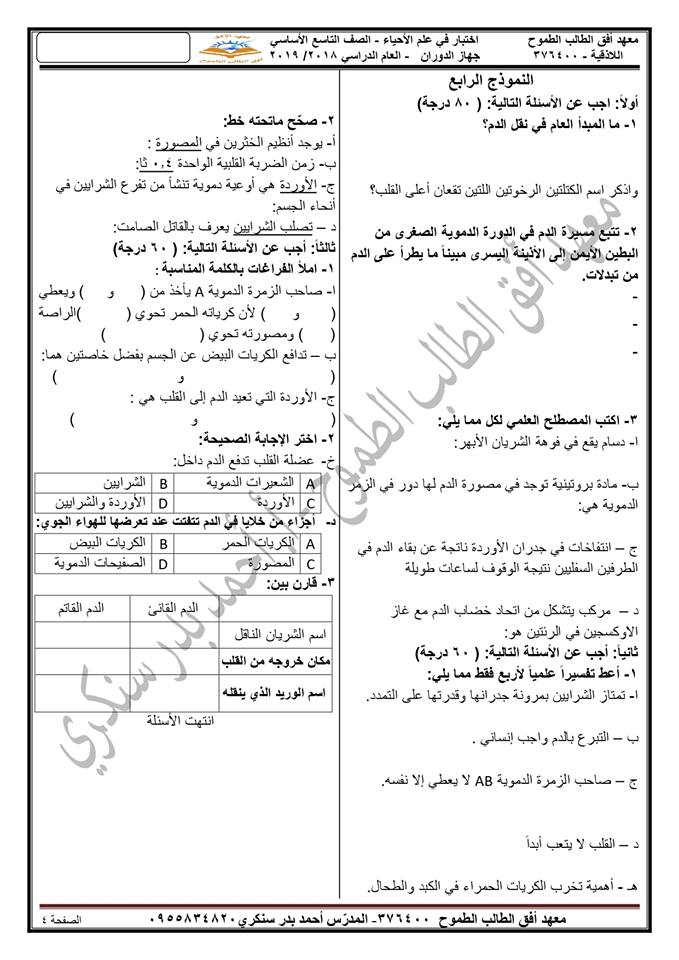 معهد أفق الطالب الطموح
اللاذقية - ٣٧٦٤٠٠
اختبار في علم الأحياء - الصف التاسع الأساسي
جهاز الدوران - العام الدراسي ٢٠١٨/ ٢٠١٩
النموذج الرابع
أولاً: اجب عن الأسئلة التالية: ( ٨٠ درجة)
١- ما المبدأ العام في نقل الدم؟
واذكر اسم الكتلتين الرخوتين اللتين تقعان أعلى القلب؟
٢- تتبع مسيرة الدم في الدورة الدموية الصغرى من
البطين الأيمن إلى الأذينة اليسرى مبيناً ما يطرأ على الدم
من تبدلات.
-
-
-
٣- اكتب المصطلح العلمي لكل مما يلي:
ا- دسام يقع في فوهة الشريان الأبهر:
ب- مادة بروتينية توجد في مصورة الدم لها دور في الزمر
الدموية هي:
ج – انتفاخات في جدران الأوردة ناتجة عن بقاء الدم في
الطرفين السفليين نتيجة الوقوف لساعات طويلة
د – مركب يتشكل من اتحاد خضاب الدم مع غاز
الاوكسجين في الرئتين هو:
ثانياً: أجب عن الأسئلة التالية: ( ٦٠ درجة)
١- أعط تفسيراً علمياً لأربع فقط مما يلي:
ا- تمتاز الشرايين بمرونة جدرانها وقدرتها على التمدد.
ب – التبرع بالدم واجب إنساني .
ج – صاحب الزمرة الدموية AB لا يعطي إلا نفسه.
د – القلب لا يتعب أبداً
هـ - أهمية تخرب الكريات الحمراء في الكبد والطحال.
٢- صحّح ماتحته خط:
أ- يوجد أنظيم الخثرين في المصورة :
ب- زمن الضربة القلبية الواحدة ٠,٤ ثا:
ج- الأوردة هي أوعية دموية تنشأ من تفرع الشرايين في
أنحاء الجسم:
د – تصلب الشرايين يعرف بالقاتل الصامت:
ثالثاً: أجب عن الأسئلة التالية: ( ٦٠ درجة)
١- املأ الفراغات بالكلمة المناسبة :
ا- صاحب الزمرة الدموية A يأخذ من ( و ) ويعطي
( و ) لأن كرياته الحمر تحوي ( )الراصة
( ) ومصورته تحوي ( )
ب – تدافع الكريات البيض عن الجسم بفضل خاصتين هما:
( و )
ج- الأوردة التي تعيد الدم إلى القلب هي :
( و )
٢- اختر الإجابة الصحيحة:
خ- عضلة القلب تدفع الدم داخل:
A الشعيرات الدموية B الشرايين
C الأوردة D الأوردة والشرايين
د- أجزاء من خلايا في الدم تتفتت عند تعرضها للهواء الجوي:
A الكريات الحمر B الكريات البيض
C المصورة D الصفيحات الدموية
٣- قارن بين:
الدم القانئ الدم القاتم
اسم الشريان الناقل
مكان خروجه من القلب
اسم الوريد الذي ينقله
انتهت الأسئلة
معهد أفق الطالب الطموح - أ. أحمد بدر سنكري
معهد أفق الطالب الطموح ٣٧٦٤٠٠- المدرّس أحمد بدر سنكري ٠٩٥٥٨٣٤٨٢٠
الصفحة ٤